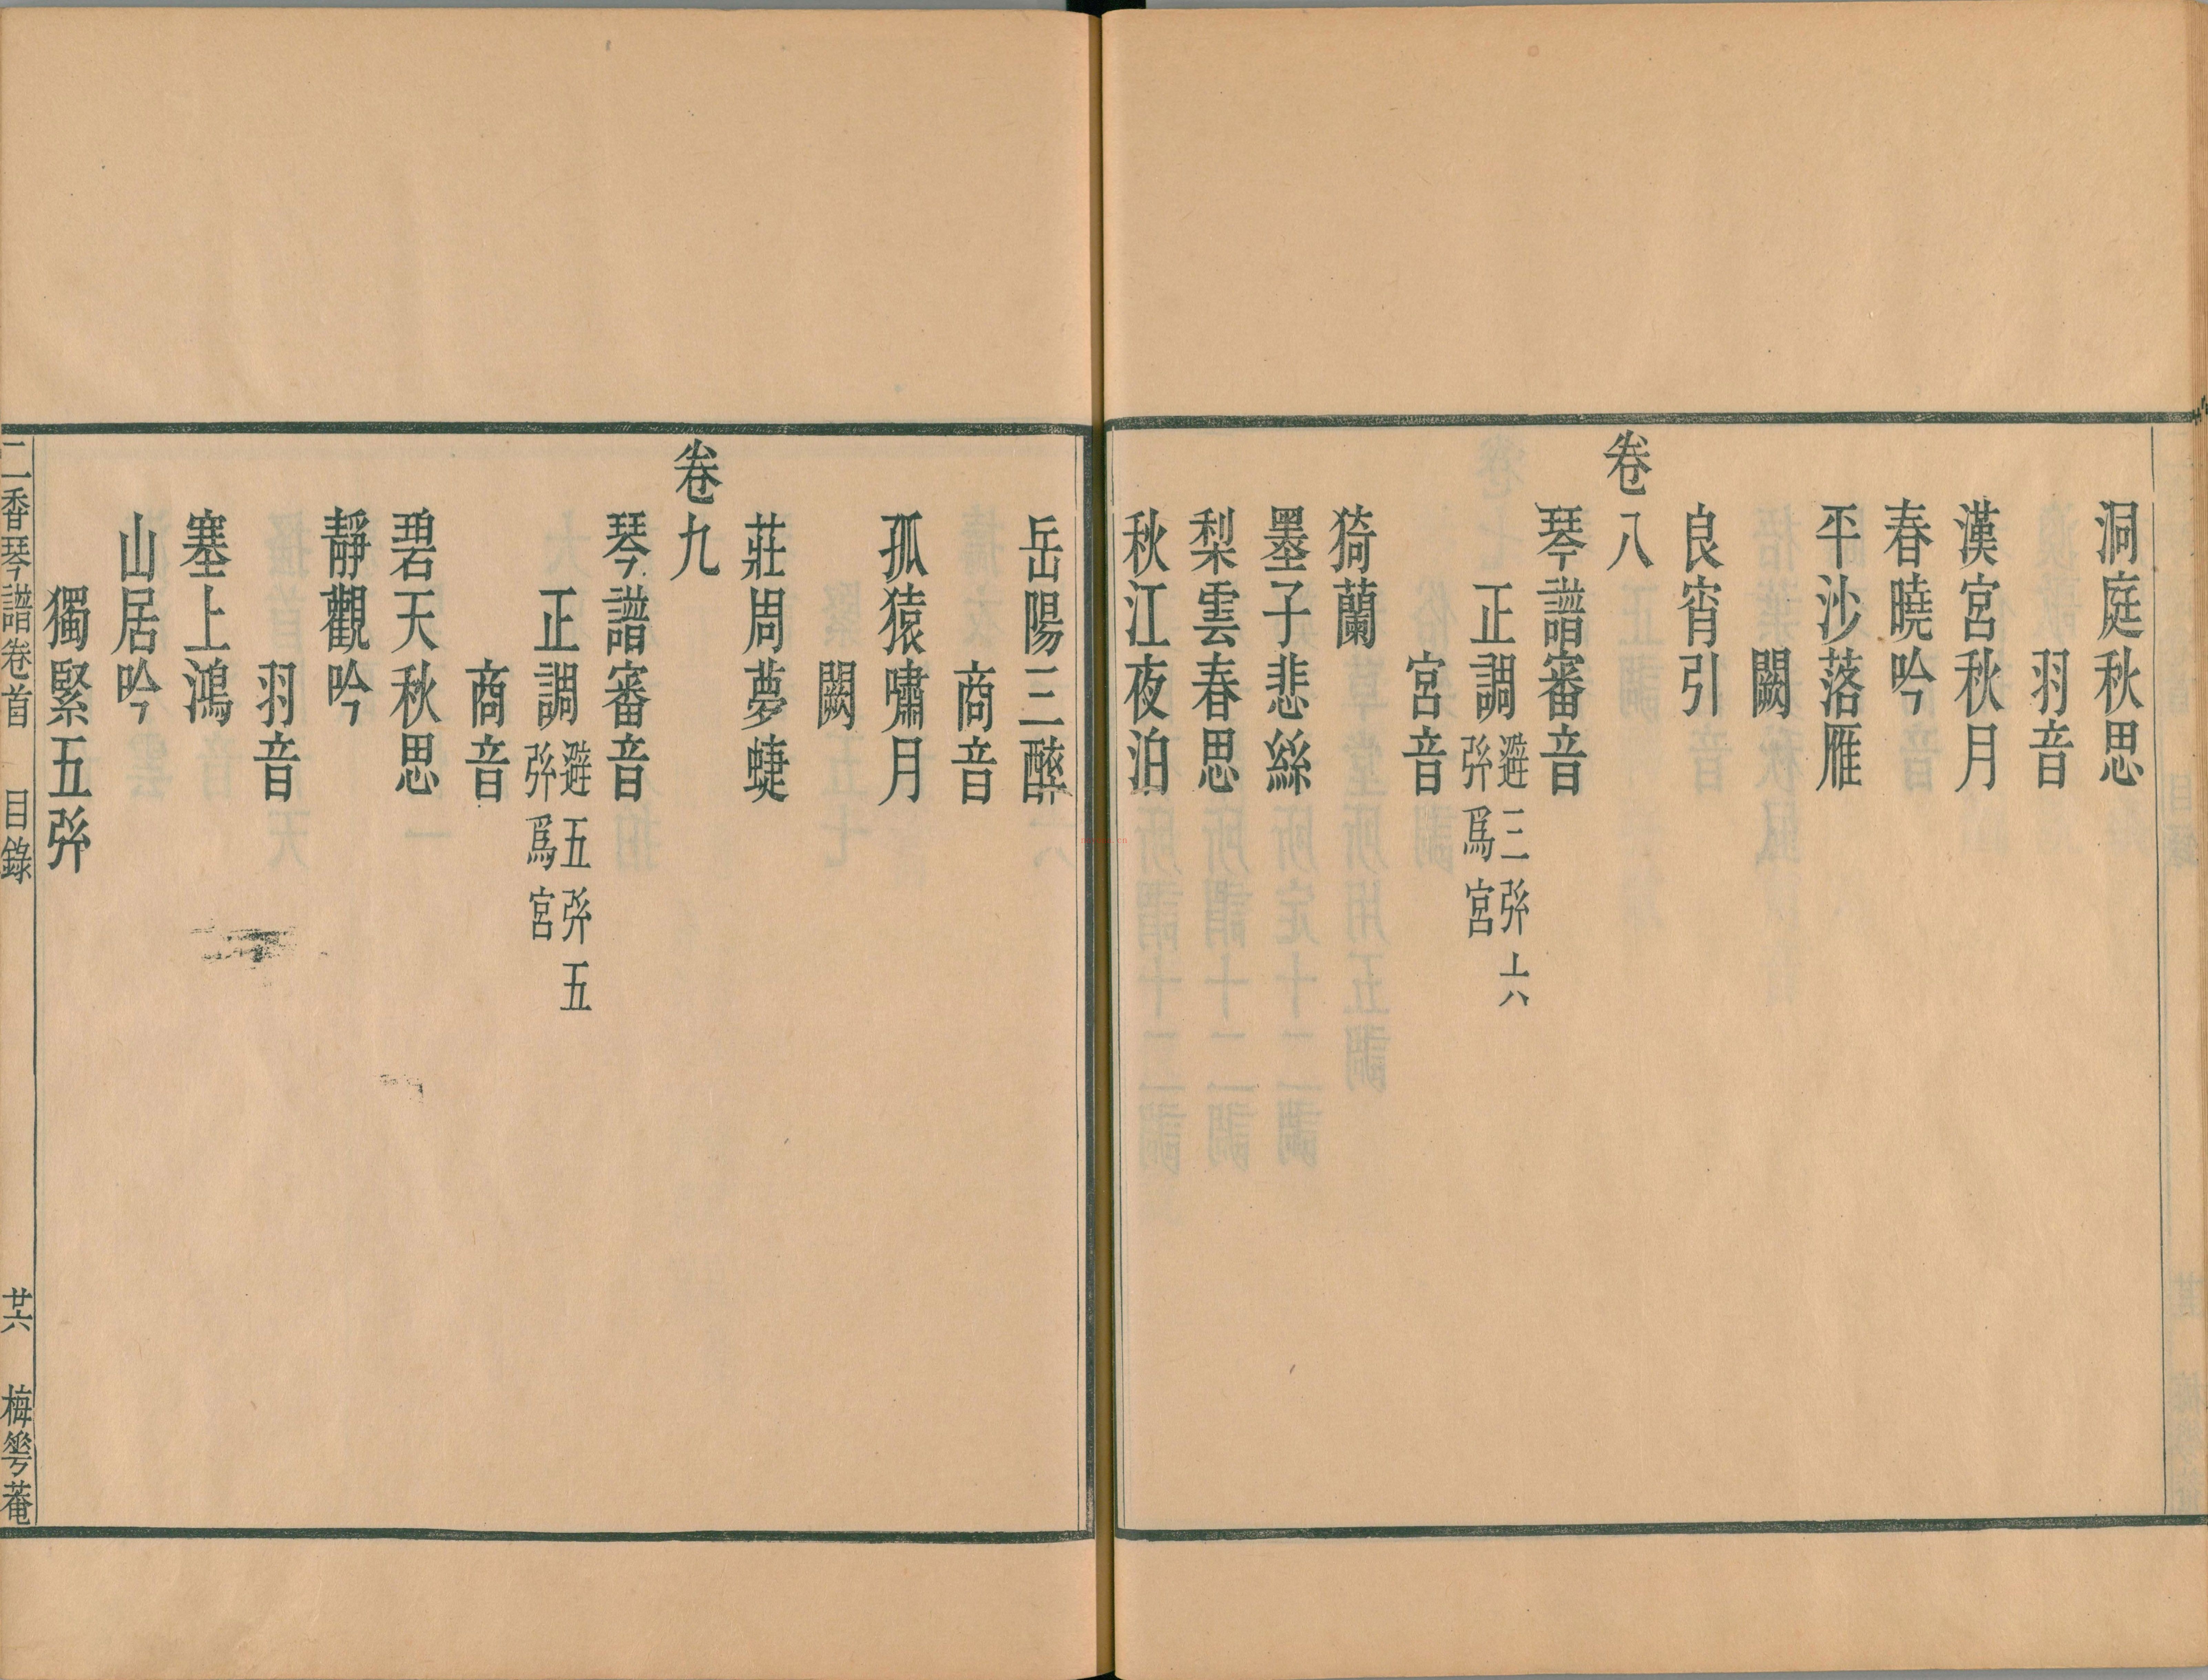 洞庭秋思
羽音
漢宮秋月
春曉吟
平沙落雁
闕
良宵引
卷八
琴譜審音
正調避三弥六
弥爲宮
宮音
猗蘭
墨子悲絲
梨雲春思
秋江夜泊
岳陽三醉
商音
孤猿嘯月
闕
莊周夢蜨
卷九
琴譜審音
正調避五弥五
弥爲宮
商音
碧天秋思
靜觀吟
羽音
塞上鴻
山居吟
獨緊五弥
二香琴譜卷首 目錄 廿六 梅蕚菴